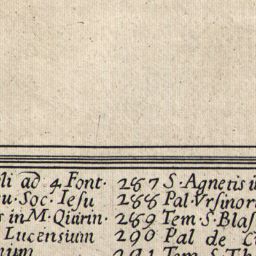 li ad 4 Font· 287 S·Agnetis i
u·Soc·Iesu 288 Pal·Vrsinor
s in M·Quirin· 289 Tem·S·Blas
Lucensium 290 Pal de C
num 291 Tem S Th